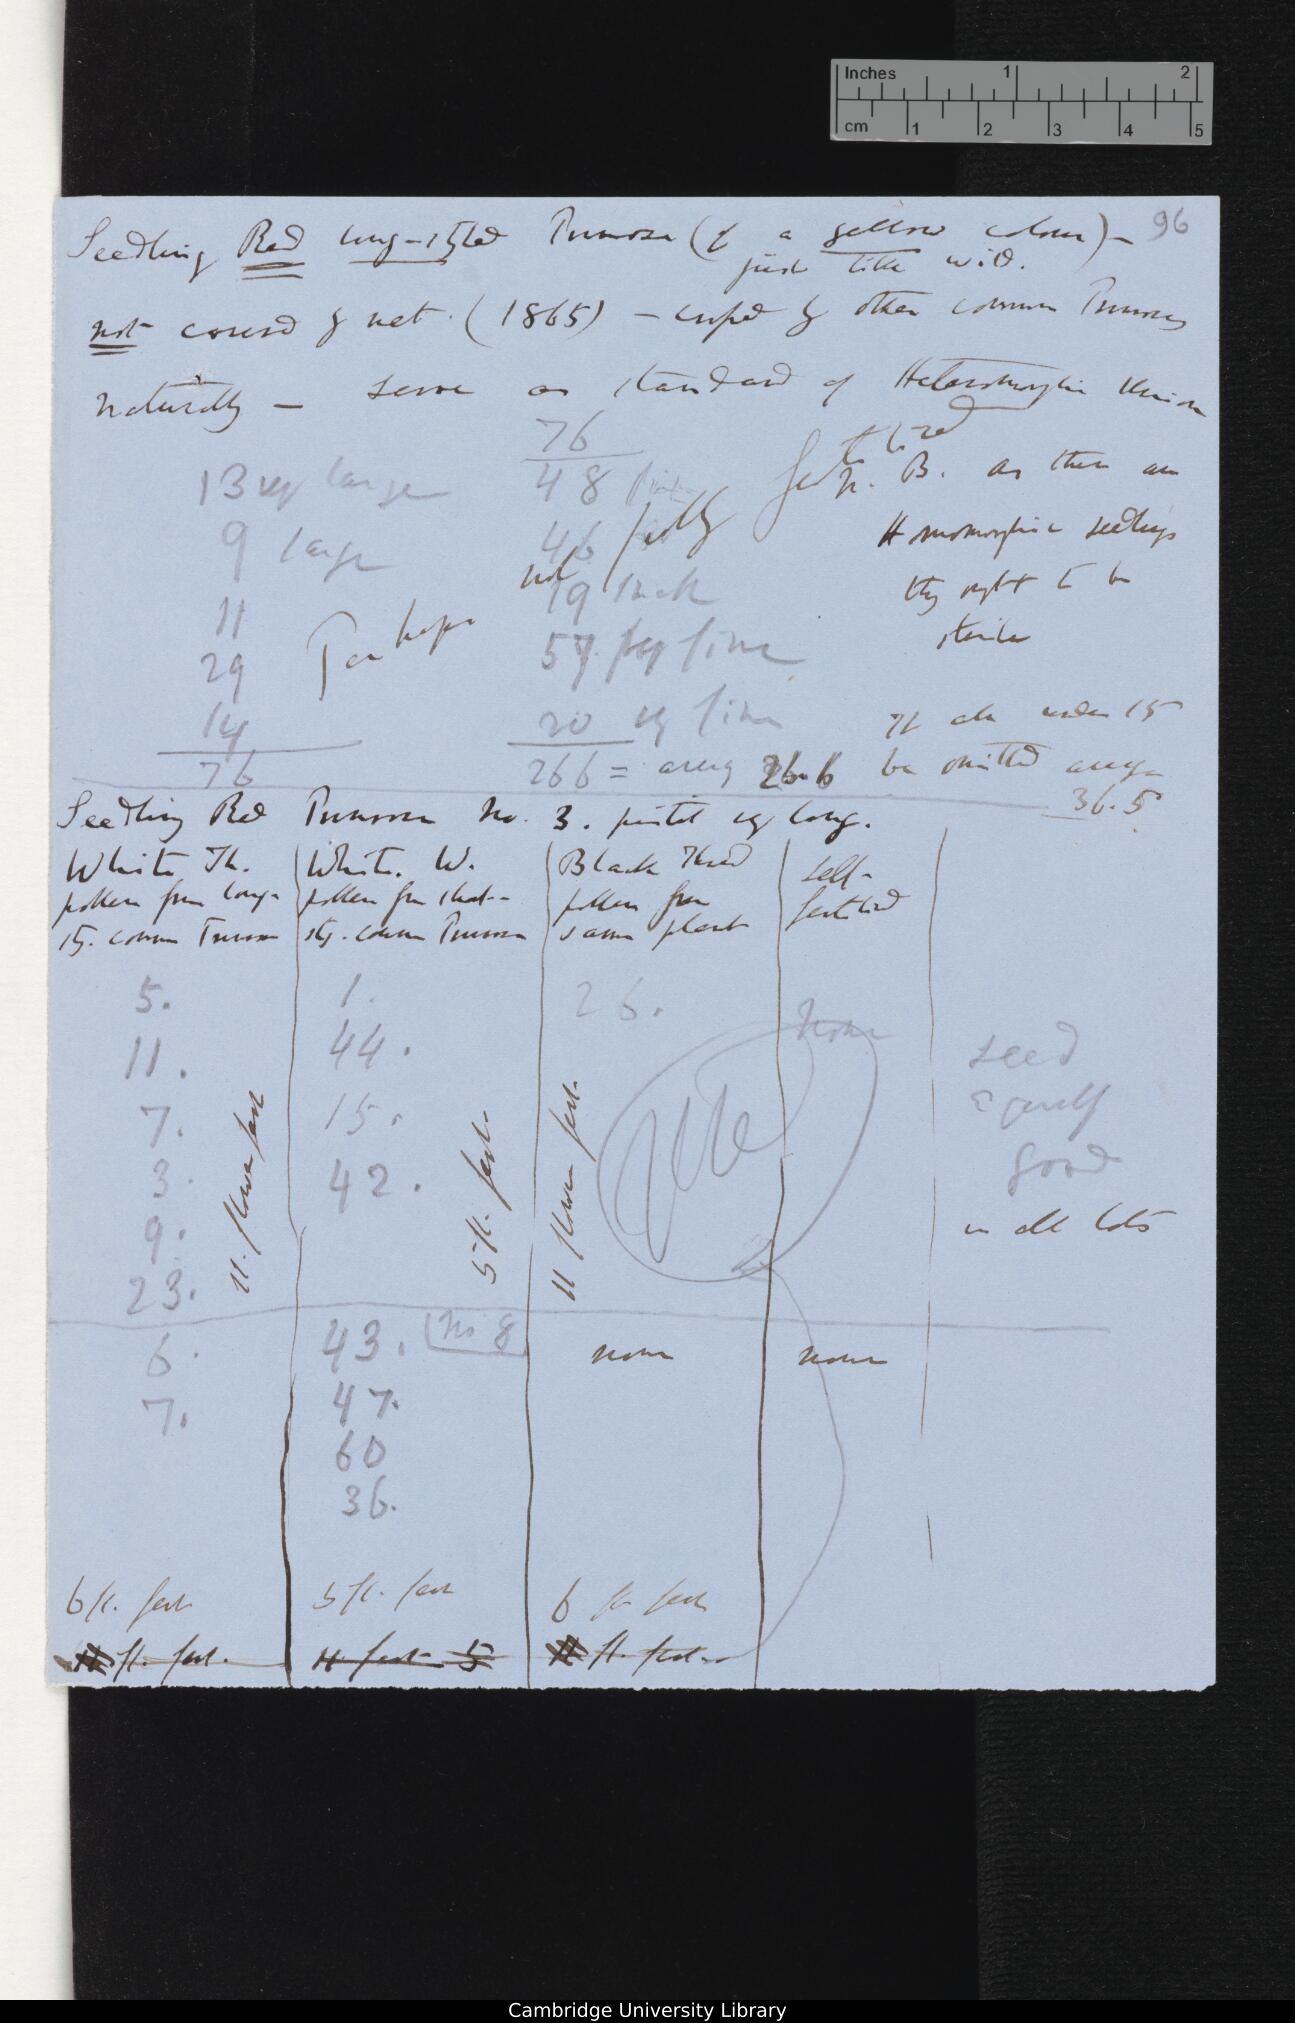 Inches 1 2
cm 1 2 3 4 5
96
Seedling Red long-styled Primrose (of a yellow colour) –
just like wild.
not covered by net. (1865) – crossed by other common Primroses
naturally – serve as standard of Heteromorphic Union
13 very large
9 large
11
29
14
76
76
48 fine
46
19
57. very fine
20 very fine
266 = average 26.6
Perhaps not fully fertilized
N. B. as these are
Homomorphic seedlings
they ought to be
sterile
If all under 15
be omitted average
36.5
Seedling Red Primrose No. 3. pistil very long.
White Th.
pollen from long-
sty. common Primrose
5.
11.
7.
3.
9.
23.
11. flowers fert
6.
7.
6 fl. fert.
fl. fert.
White. W.
pollen from short-
sty. common Primrose
1.
44.
15.
42.
5 fl. fert.
43. No 8
47.
60
36.
5 fl. fert
fert 5
Black Thread
pollen from
same plant
26.
11 flowers fert.
none
6 fl. fert
fl. fert.
self-
fertilised
none
none
seed
equally
good
in all lots
Cambridge University Library